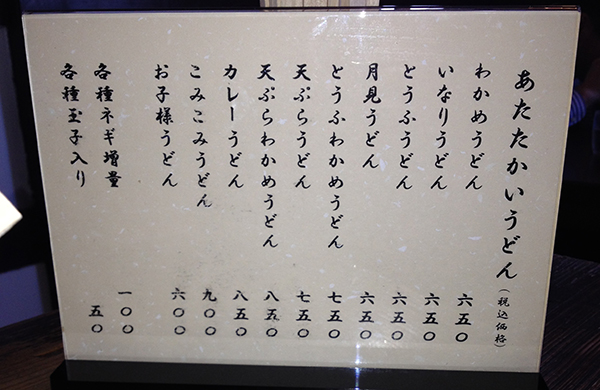 あたたかいうどん（税込価格）
わかめうどん 六五〇
いなりうどん 六五〇
とうふうどん 六五〇
月見うどん 六五〇
とうふわかめうどん 七五〇
天ぷらうどん 七五〇
天ぷらわかめうどん 八五〇
カレーうどん 八五〇
こみこみうどん 九〇〇
お子様うどん 六〇〇
各種ネギ増量 一〇〇
各種玉子入り 五〇